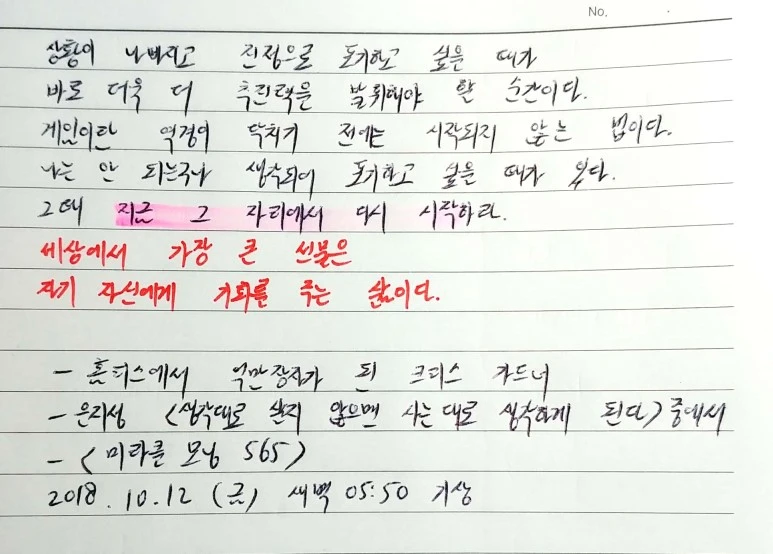 No.
상황이 나빠지고 진정으로 포기하고 싶은 때가
바로 더욱 더 추진력을 발휘해야 할 순간이다.
게임이란 역경이 닥치기 전에는 시작되지 않는 법이다.
나는 안 되는구나 생각되어 포기하고 싶을 때가 있다.
그때 지금 그 자리에서 다시 시작하라.
세상에서 가장 큰 선물은
자기 자신에게 기회를 주는 삶이다.
- 홈리스에서 억만장자가 된 크리스 가드너
- 은지성 <생각대로 살지 않으면 사는대로 생각하게 된다> 중에서
- <미라클 모닝 565>
2018.10.12 (금) 새벽 05:50 기상